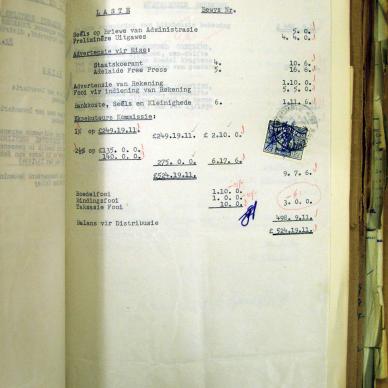 LASTE Bewys Nr.
Seëls op Briewe van Administrasie 5. 0.
Preliminêre Uitgawes 4. 4. 0.
Advertensie vir Eise:
Staatskoerant 4. 10. 6.
Adelaide Free Press 5. 16. 6.
Advertensie van Rekening 1.10. 0.
Fooi vir indiening van Rekening 5. 5. 0.
Bankkoste, Seëls en Kleinighede 6. 1.11. 6.
Eksekuteurs Kommissie:
1% op £249.19.11. £249.19.11. £ 2.10. 0.
2½% op £135. 0. 0.
140. 0. 0.
275. 0. 0. 6.17. 6.
£524.19.11. 9. 7. 6.
Boedelfooi 1.10. 0.
Bindingsfooi 1. 0. 0.
Taksasie Fooi 10. 0. 3. 0. 0.
Balans vir Distribusie 498. 9.11.
£ 524.19.11.